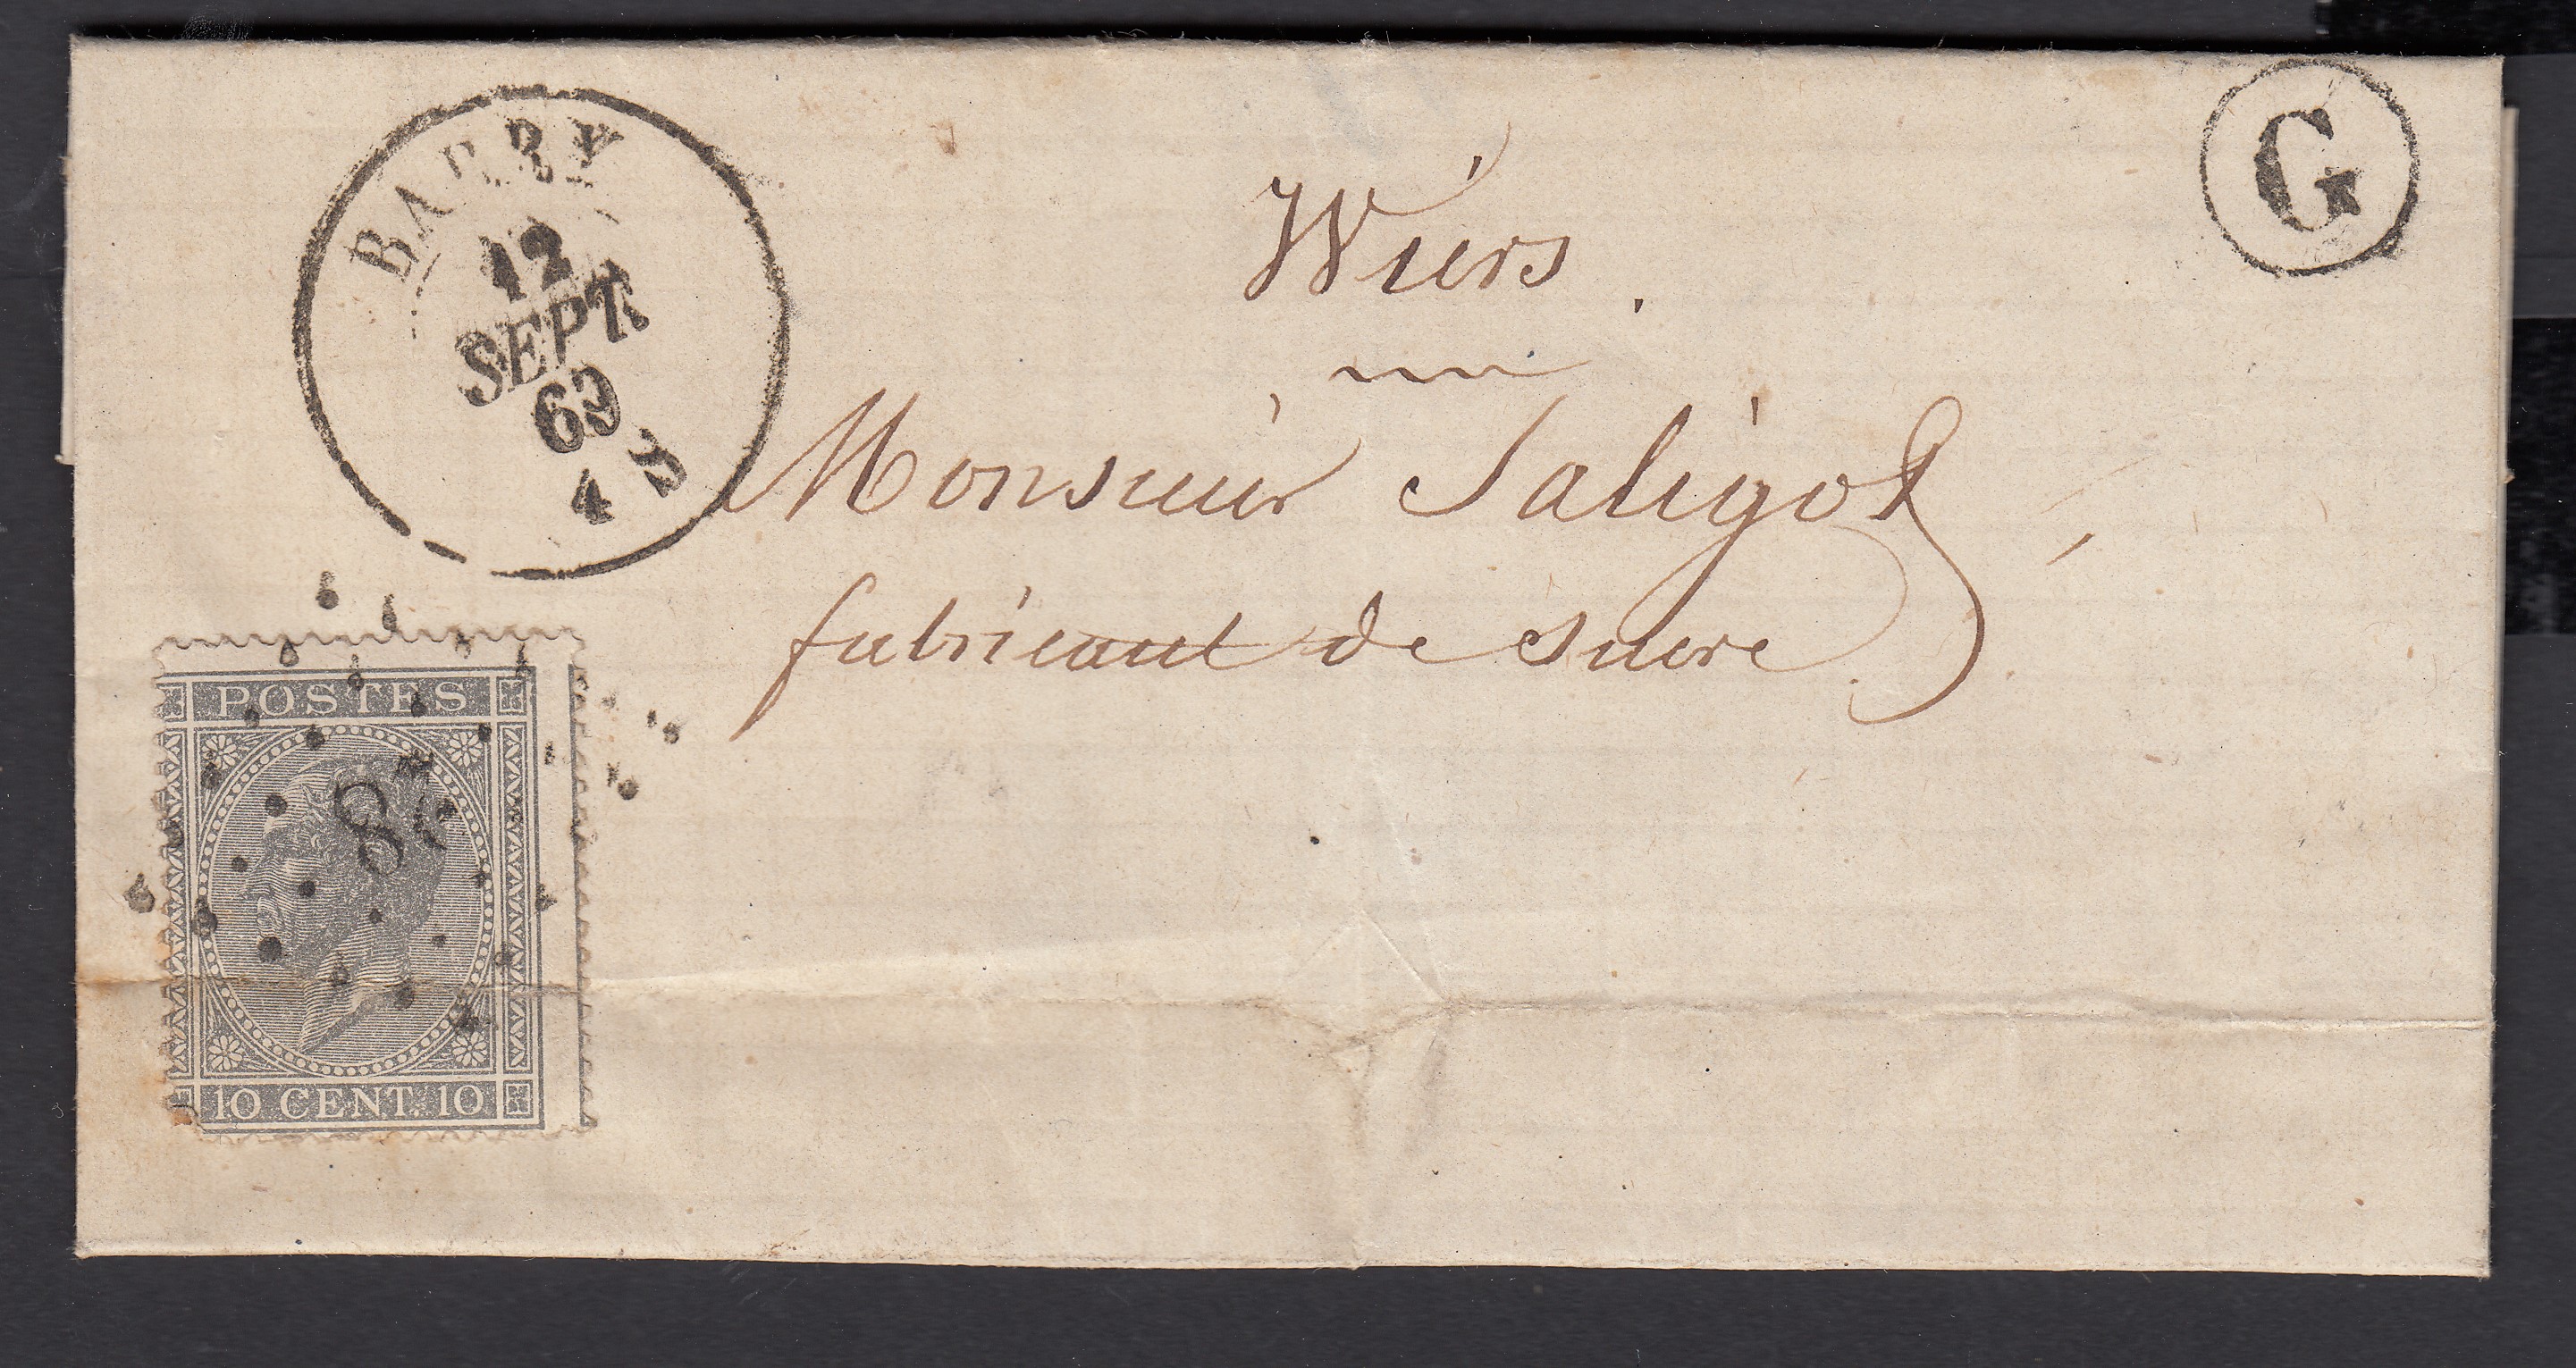 BARRY
12
SEPT
69
4 S
G
Wiers.
Monsieur Saligot
fabricant de sucre
POSTES
10 CENT. 10